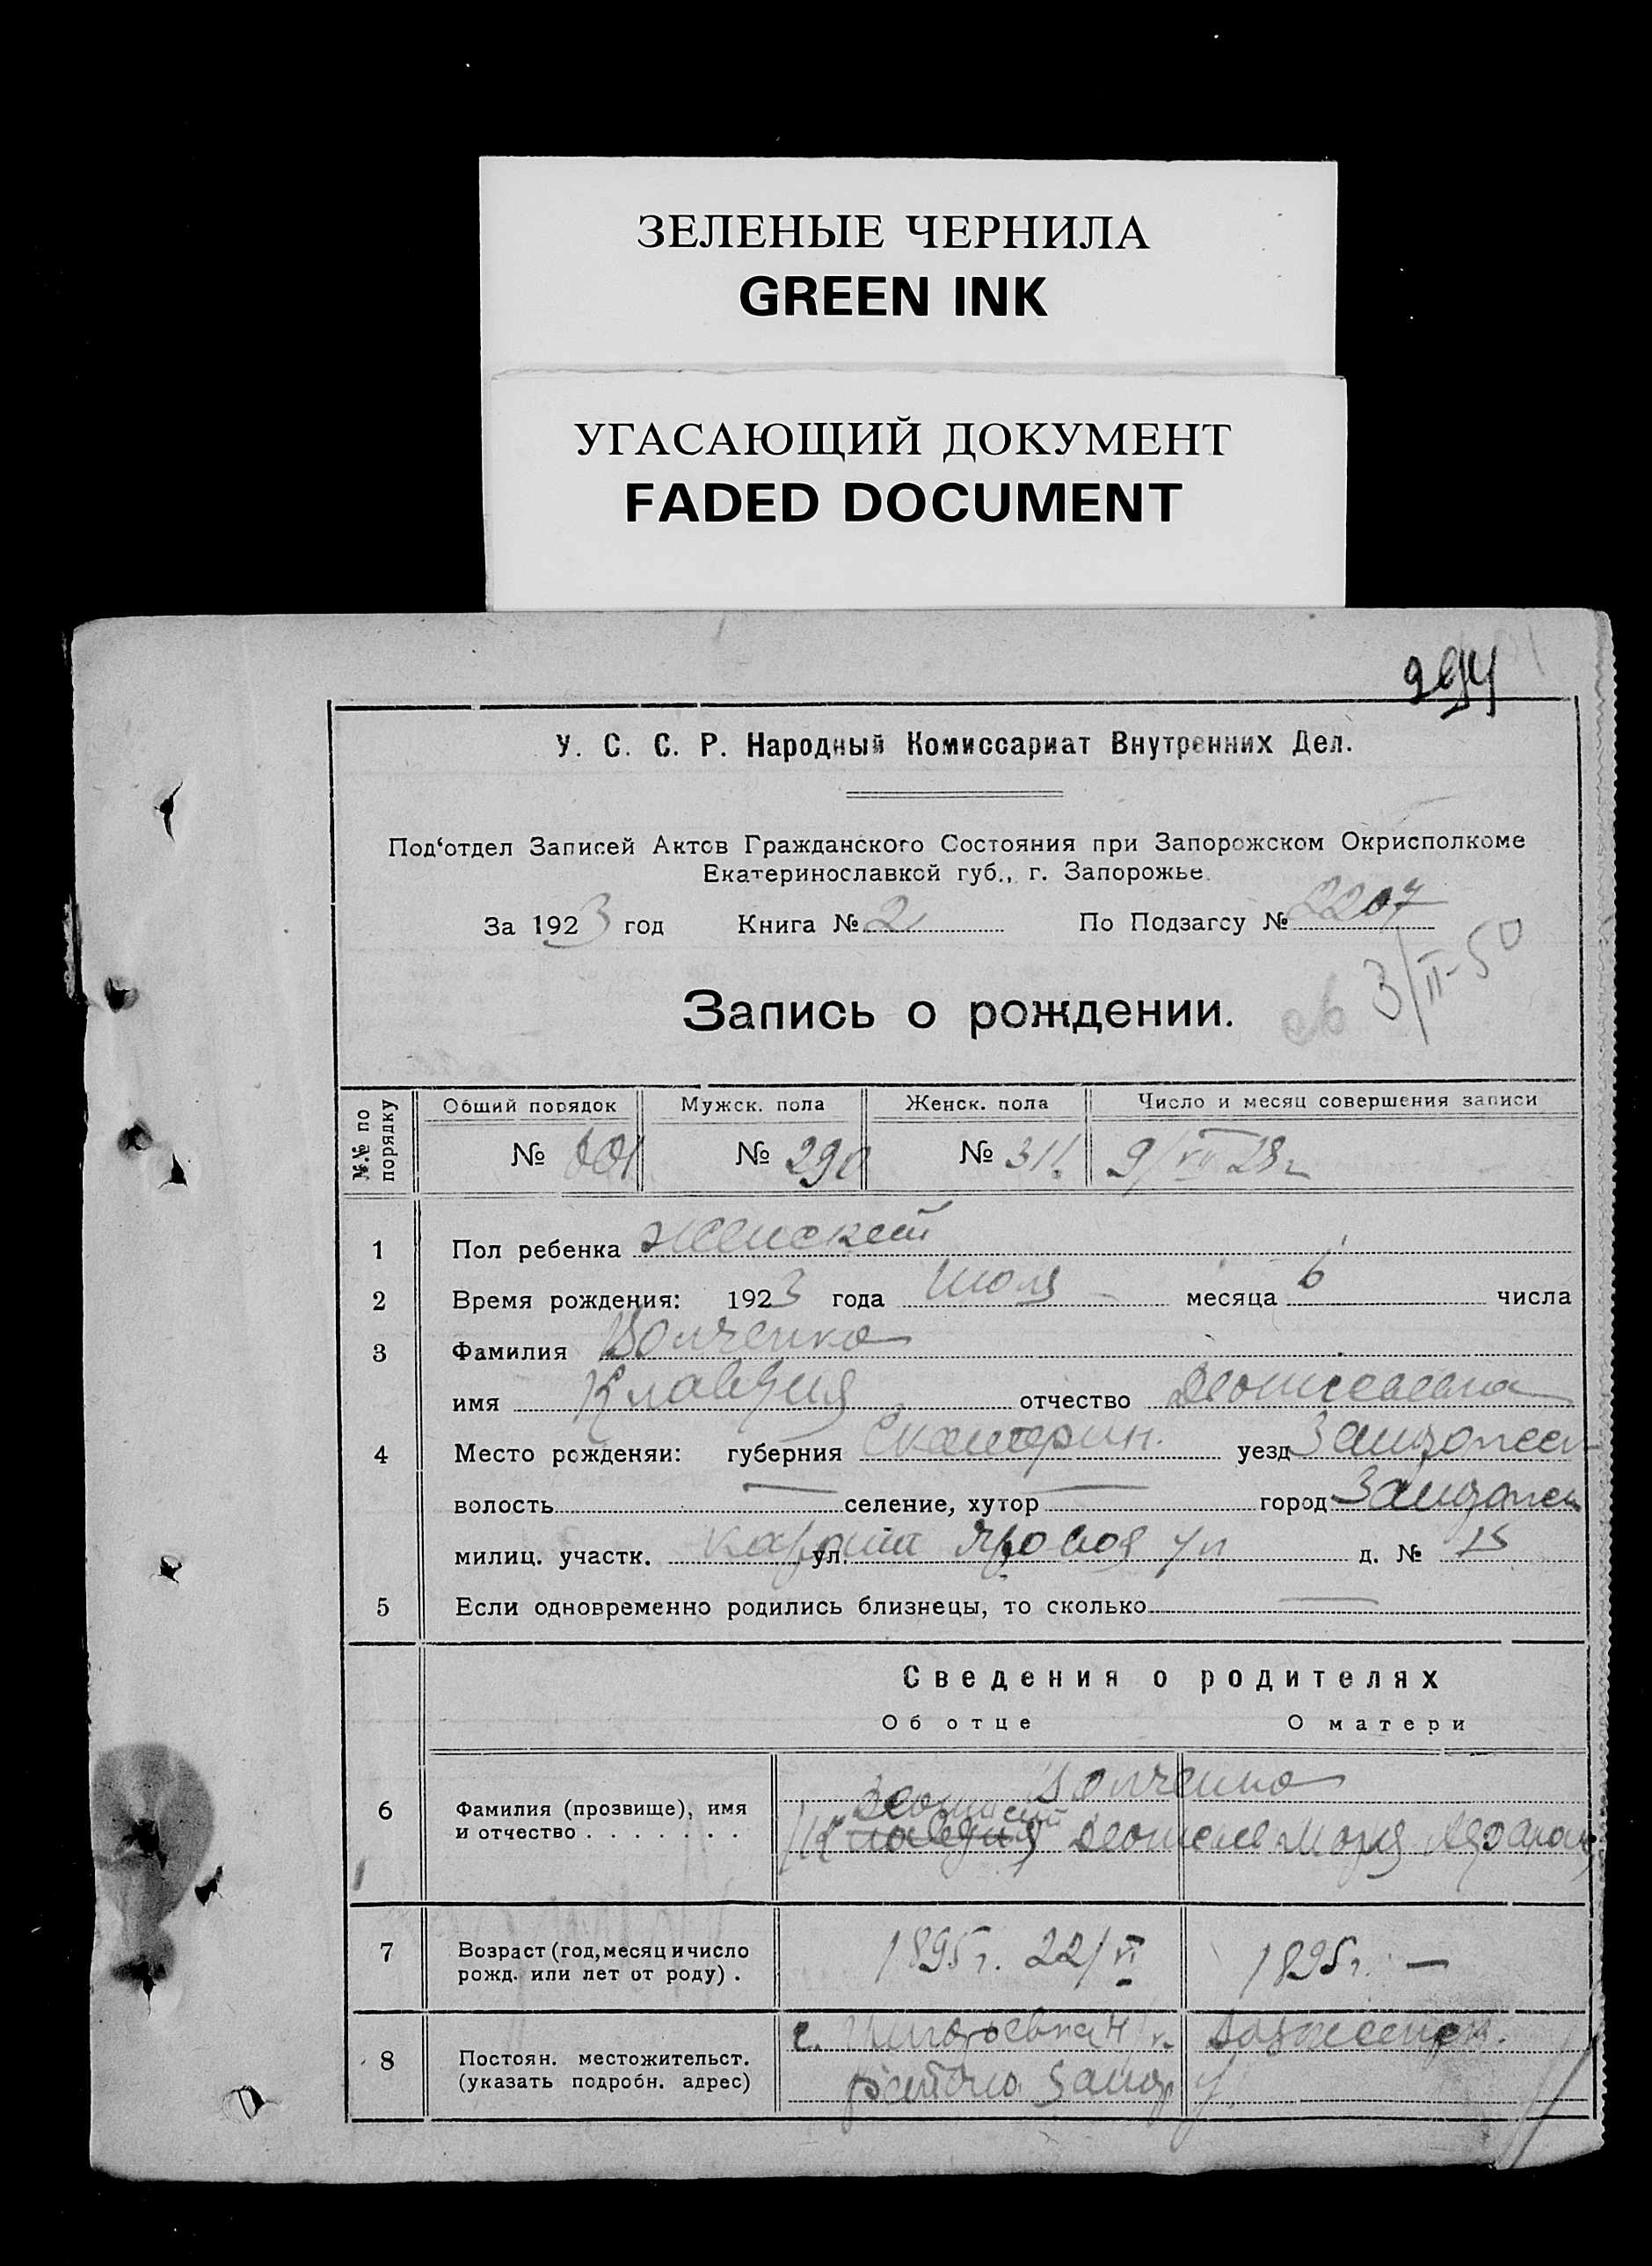 ЗЕЛЕНЫЕ ЧЕРНИЛА
GREEN INK
УГАСАЮЩИЙ ДОКУМЕНТ
FADED DOCUMENT
У. С. С. Р. Народный Комиссариат Внутренних Дел.
Под‘отдел Записей Актов Гражданского Состояния при Запорожском Окрисполкоме
Екатеринославкой губ., г. Запорожье.
За 1923 год Книга № 2 По Подзагсу № 2207
3/II-50
Запись о рождении.
№№ по порядку
Общий порядок Мужск. пола Женск. пола Число и месяц совершения записи
№ 601 № 290 № 311 9/VII 23 г
1 Пол ребенка женский
2 Время рождения: 1923 года Июля месяца 6 числа
3 Фамилия Волченко
имя Клавдия отчество
4 Место рожденяи: губерния Екатерин. уезд Запорожск
волость — селение, хутор — город Запорож
милиц. участк. ул. Яровая ул д. № 15
5 Если одновременно родились близнецы, то сколько —
Сведения о родителях
Об отце О матери
6 Фамилия (прозвище), имя Волченко
и отчество . . . . . . . Клавдия
7 Возраст (год, месяц и число 1895 г. 22/VI 1895 г. —
рожд. или лет от роду) .
8 Постоян. местожительст. с.
(указать подробн. адрес) Запор у.